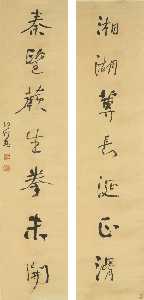 湘湖蓴長涎正滑
秦望蕨生拳未開